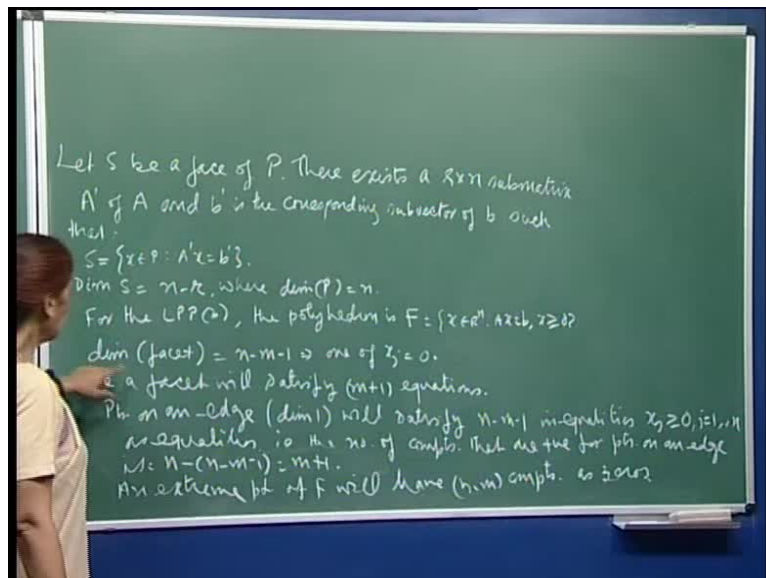 Let S be a face of P. There exists a r×n submatrix
A' of A and b' is the corresponding subvector of b such
that:
S = {x∈P : A'x = b'}.
Dim S = n-r, where dim(P) = n.
For the LPP(2), the polyhedron is F = {x∈Rⁿ: Ax=b, x≥0}
dim (facet) = n-m-1 ⇒ one of xj = 0.
a facet will satisfy (m+1) equations.
Pt. on an edge (dim 1) will satisfy n-m-1 inequalities xj ≥ 0, j=1,..n
as equalities ie the no. of compts. that are +ve for pts. on an edge
is = n-(n-m-1) = m+1.
An extreme pt of F will have (n-m) compts. as zeros